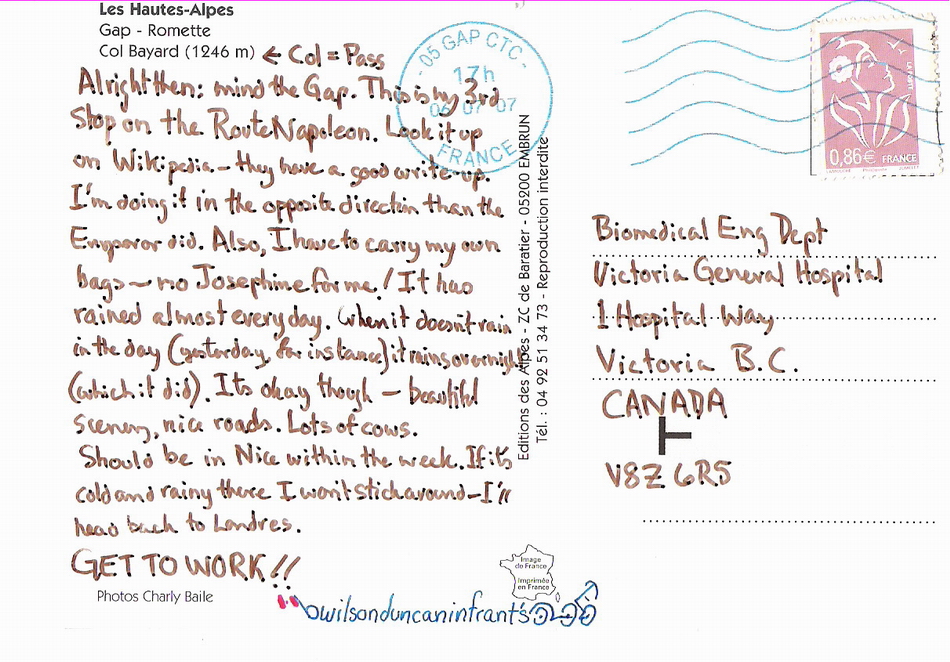 Les Hautes-Alpes
Gap - Romette
Col Bayard (1246 m) ← Col = Pass
Alright then: mind the Gap. This is my 3rd
stop on the Route Napoleon. Look it up
on Wikipedia - they have a good write-up.
I'm doing it in the opposite direction than the
Emperor did. Also, I have to carry my own
bags - no Josephine for me! It has
rained almost every day. When it doesn't rain
in the day (yesterday, for instance) it rains overnight
(which it did). Its okay though - beautiful
scenery, nice roads. Lots of cows.
Should be in Nice within the week. If its
cold and rainy there I won't stick around - I'll
head back to Londres.
GET TO WORK!!
Photos Charly Baile
owilsonduncaninfrant's
Image
de France
Imprimée
en France
Editions des Alpes - ZC de Baratier - 05200 EMBRUN
Tél. : 04 92 51 34 73 - Reproduction interdite
05 GAP CTC
17h
06 07 07
FRANCE
0,86€ FRANCE
Biomedical Eng Dept
Victoria General Hospital
1 Hospital Way
Victoria B.C.
CANADA
T
V8Z 6R5